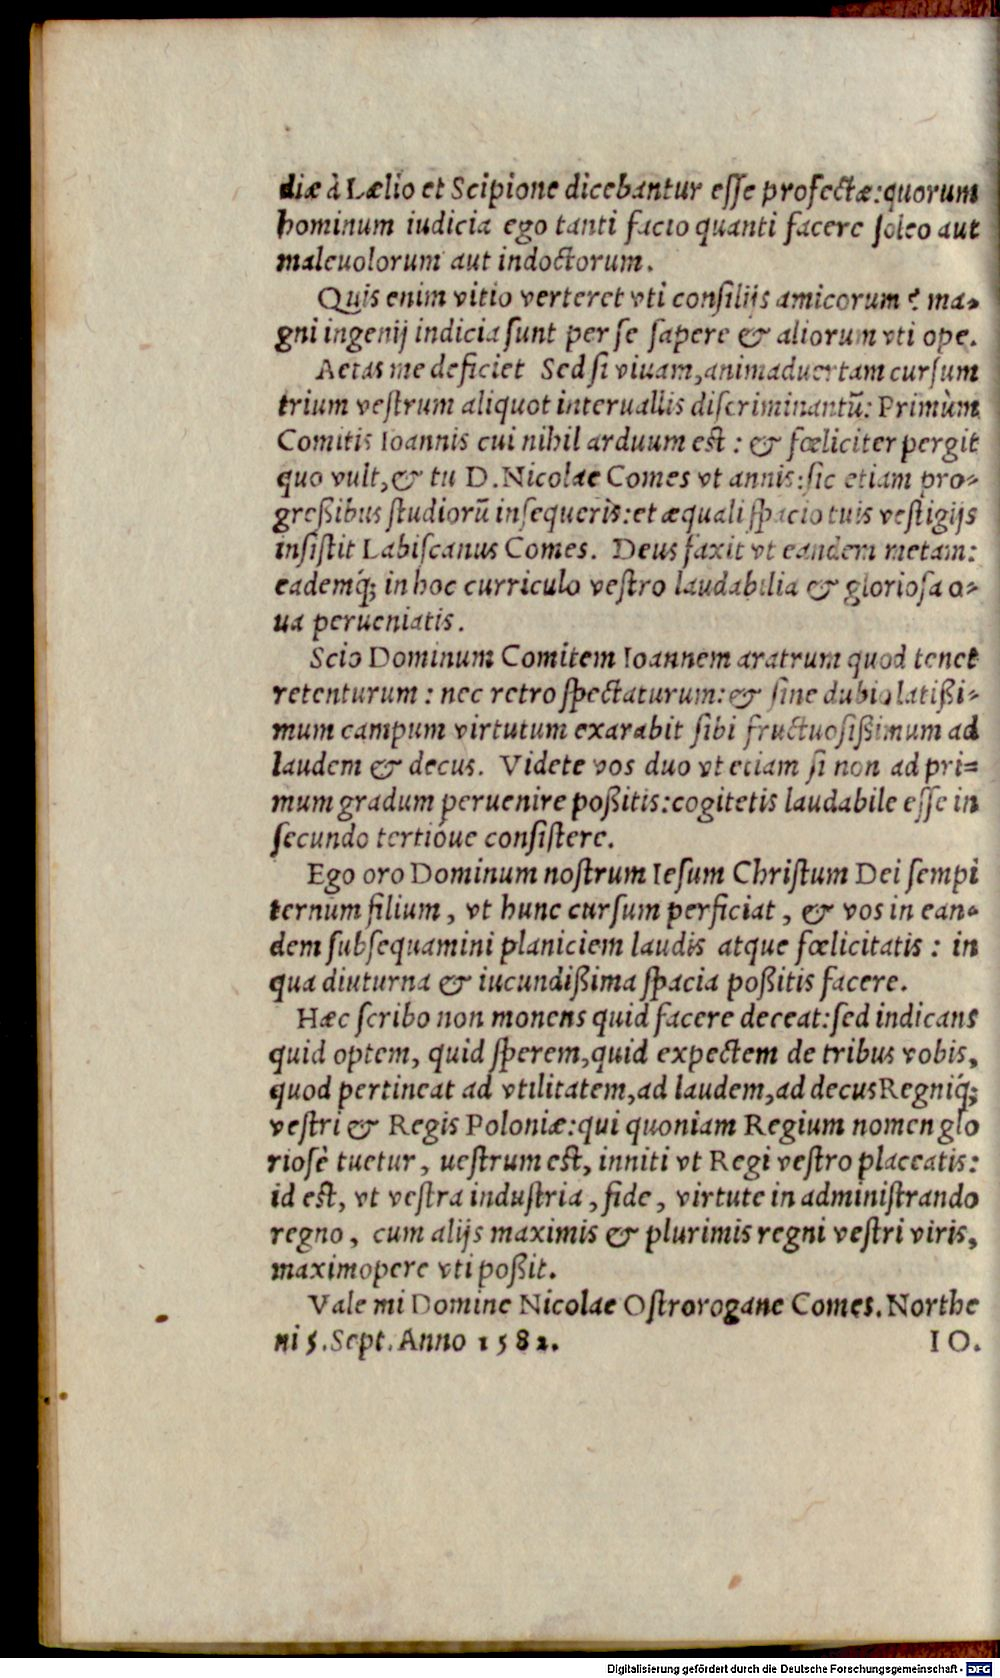 diæ à Lælio et Scipione dicebantur eſſe profectæ: quorum
hominum iudicia ego tanti facio quanti facere ſoleo aut
maleuolorum aut indoctorum.
Quis enim vitio verteret vti conſilijs amicorum? ma-
gni ingenij indicia ſunt per ſe ſapere & aliorum vti ope.
Aetas me deficiet Sed ſi viuam, animaduertam curſum
trium veſtrum aliquot interuallis diſcriminantũ: Primùm
Comitis Ioannis cui nihil arduum eſt: & fœliciter pergit
quo vult, & tu D. Nicolae Comes vt annis: ſic etiam pro-
greßibus ſtudiorũ inſequeris: et æquali ſpacio tuis veſtigijs
inſiſtit Labiſcanus Comes. Deus faxit vt eandem metam:
eademq́; in hoc curriculo veſtro laudabilia & glorioſa o-
ua perueniatis.
Scio Dominum Comitem Ioannem aratrum quod tenet
retenturum: nec retro ſpectaturum: & ſine dubio latißi-
mum campum virtutum exarabit ſibi fructuoſißimum ad
laudem & decus. Videte vos duo vt etiam ſi non ad pri=
mum gradum peruenire poßitis: cogitetis laudabile eſſe in
ſecundo tertióue conſiſtere.
Ego oro Dominum noſtrum Ieſum Chriſtum Dei ſempi
ternum filium, vt hunc curſum perficiat, & vos in ean-
dem ſubſequamini planiciem laudis atque fœlicitatis: in
qua diuturna & iucundißima ſpacia poßitis facere.
Hæc ſcribo non monens quid facere deceat: ſed indicans
quid optem, quid ſperem, quid expectem de tribus vobis,
quod pertineat ad vtilitatem, ad laudem, ad decus Regniq́;
veſtri & Regis Poloniæ: qui quoniam Regium nomen glo
rioſè tuetur, ueſtrum eſt, inniti vt Regi veſtro placeatis:
id eſt, vt veſtra induſtria, fide, virtute in adminiſtrando
regno, cum alijs maximis & plurimis regni veſtri viris,
maximopere vti poßit.
Vale mi Domine Nicolae Oſtrorogane Comes. Northe
ni 5. Sept. Anno 1582. IO.
Digitalisierung gefördert durch die Deutsche Forschungsgemeinschaft - DFG